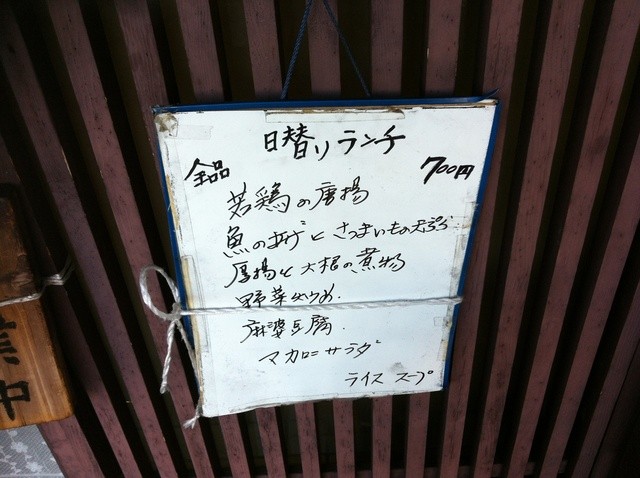 日替りランチ
全品 700円
若鶏の唐揚
魚のあげとさつまいもの天ぷら
厚揚と大根の煮物
野菜炒め.
麻婆豆腐.
マカロニサラダ
ライス スープ
中